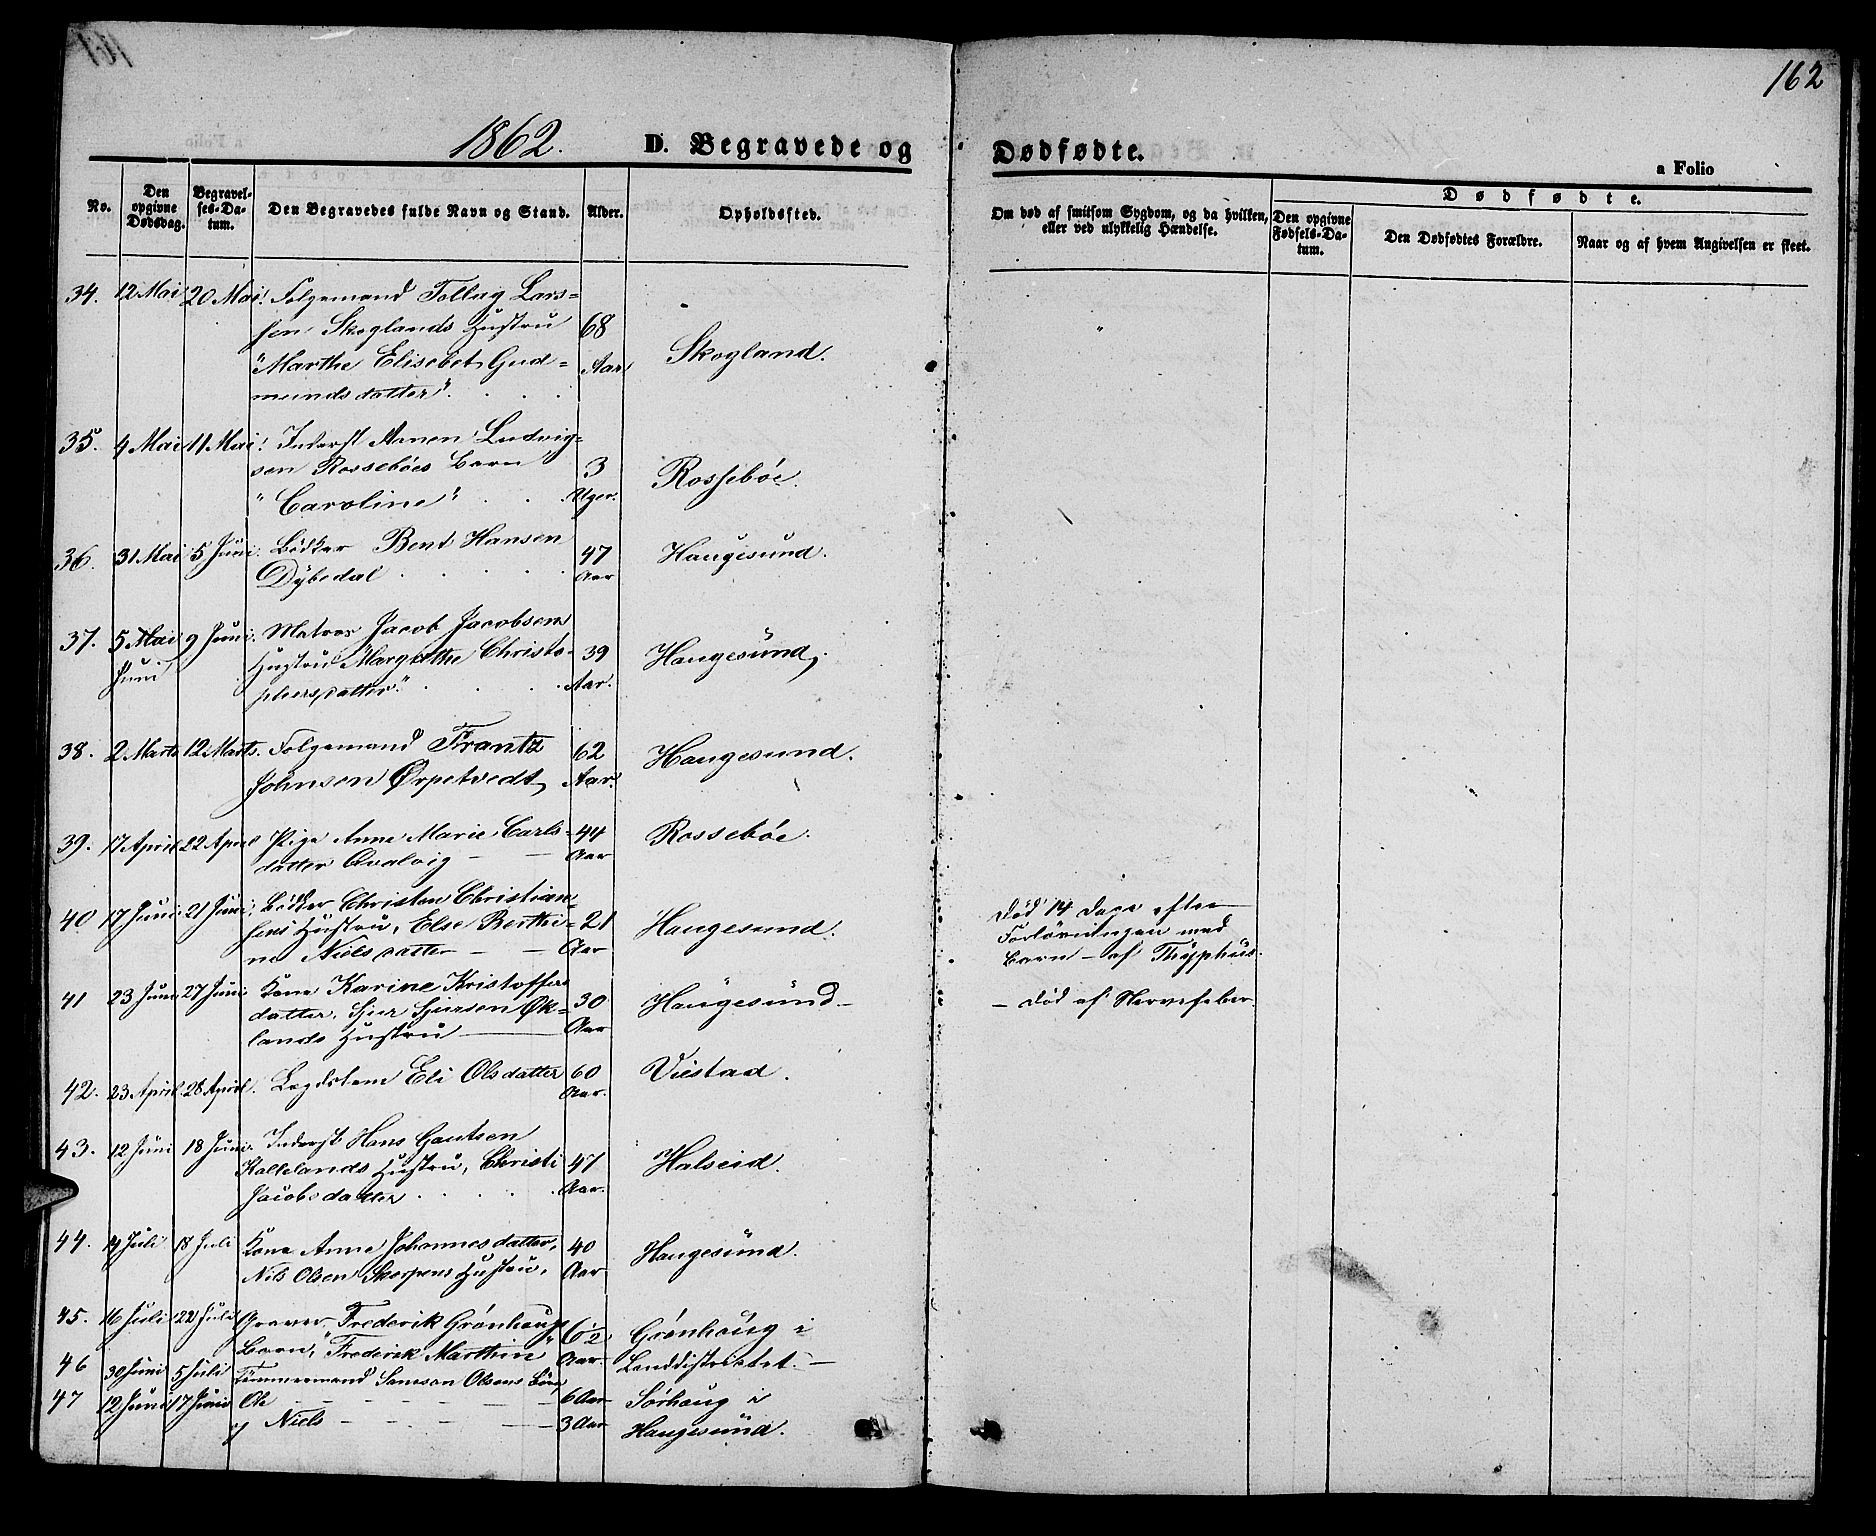 162
1862. D. Begravede og Dødfødte.
a Folio
No.
Den opgivne Dødsdag.
Begravelses-Datum.
Den Begravedes fulde Navn og Stand.
Alder.
Opholdssted.
Om død af smitsom Sygdom, og da hvilken, eller ved ulykkelig Hændelse.
Dødfødte.
Den opgivne Fødsels-Datum.
Den Dødfødtes Forældre.
Naar og af hvem Angivelsen er skeet.
34. 12 Mai 20 Mai. Folgemand Tollag Lars=
sen Skoglands Hustru 68
"Marthe Elisebet Gud= Aar Skogland. "
mundsdatter". . . .
35. 4 Mai 11 Mai. Inderst Arnen Ludvig=
sen Rossebøes Barn 3 Rossebøe.
"Caroline" . . . Uger.
36. 31 Mai 5 Juni. Bødker Bent Hansen 47 Haugesund.
Dybedal . . . . . Aar
37. 5 Mai 9 Juni. Matros Jacob Jacobsens
Juni Hustru Margrethe Christo- 39 Haugesund,
phersdatter." . . . . Aar.
38. 2 Marts 12 Marts. Folgemand Frantz 62 Haugesund.
Johnsen Ørpetvedt, Aar.
39. 17 April 22 April Pige Anne Marie Carls= 44 Rossebøe.
datter Qvalvig — — Aar
40 17 Juni 21 Juni. Bødker Christen Christian=
sens Hustru, Else Berthi= 21 Haugesund. Død 14 Dage efter
ne Nielsdatter — — Aar Forløsningen med
Barn — af Thyphus.
41 23 Juni 27 Juni Kone Karine Kristoffers
datter, Sjur Sjursen Øk= 30 Haugesund — — Død af Nervefeber.
lands Hustru — Aar
42. 23 April. 28 April. Lægdslem Eli Olsdatter 60 Viestad.
Aar.
43. 12 Juni 18 Juni. Inderst Hans Gautsen
Kallelands Hustru, Christi 47 Halseid.
Jacobsdatter . . . . Aar.
44. 14 Juli 18 Juli Kone Anne Johannesdatter, 40 Haugesund.
Nils Olsen Skorpens Hustru. Aar
45. 16 Juli 22 Juli Graver Frederik Grønhaugs 6½ Grønhaug i
Barn, "Frederik Marthin" Aar. Landdistriktet. —
46 30 Juni 5 Juli Tømmermand Samson Olsens Børn,
47 12 Juni 17 Juni Ole — — — — — 6 Aar Sørhaug i
og Niels — — — — — 3 Aar Haugesund.